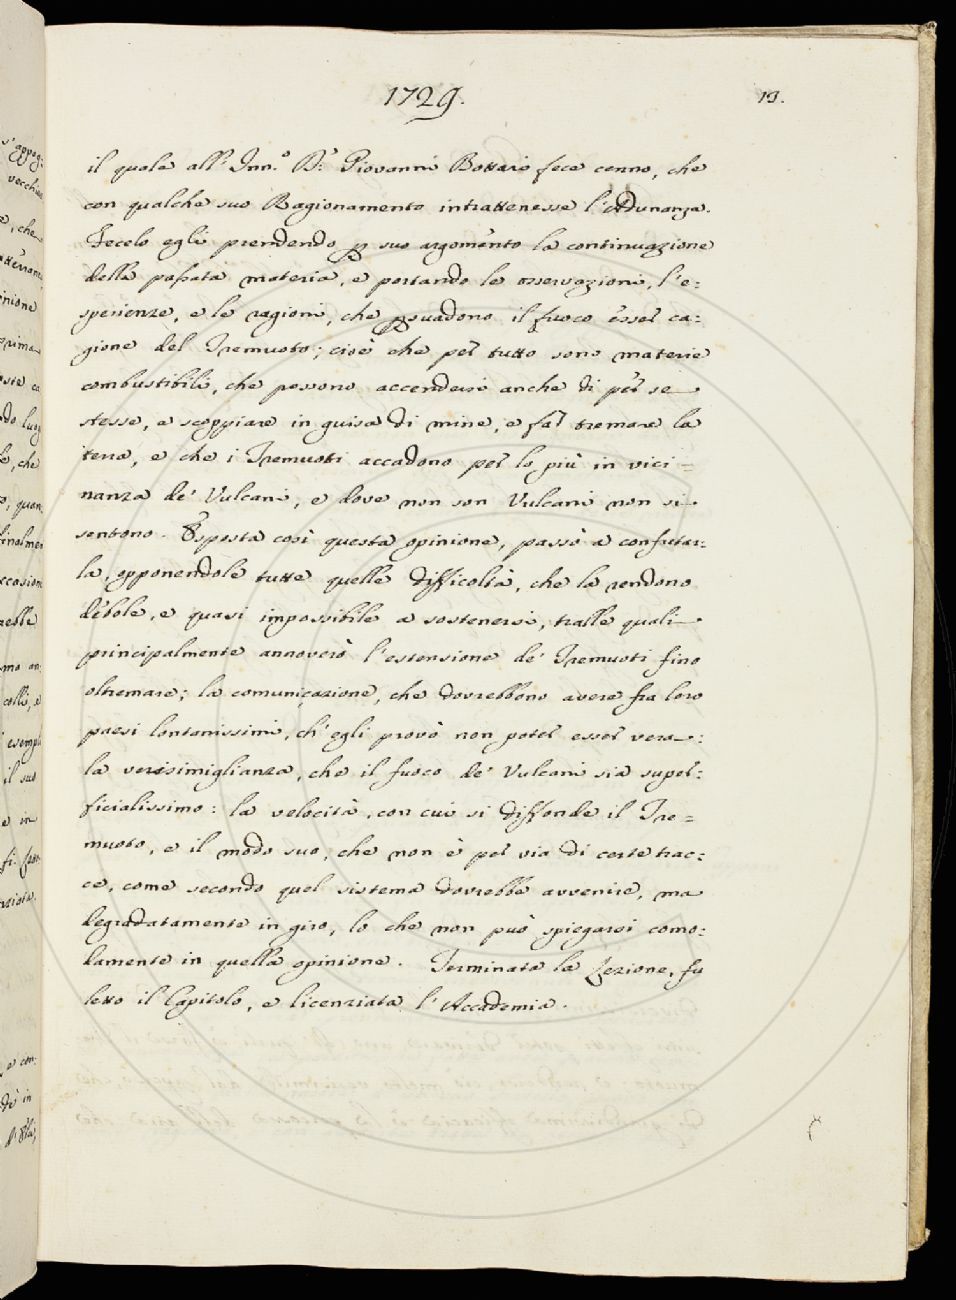 1729.
19.
il quale all' Inn.º D.ʳ Giovanni Bottari fece cenno, che
con qualche suo Ragionamento intrattenesse l'Adunanza.
Fecelo egli prendendo p suo argomento la continuazione
della passata materia, e portando le osservazioni, l'e:
sperienze, e le ragioni, che psuadono il fuoco esser ca:
gione del Tremuoto; cioè che per tutto sono materie
combustibili, che possono accendersi anche di per se
stesse, e scoppiare in guisa di mine, e far tremare la
terra, e che i Tremuoti accadono per lo più in vici=
nanza de' Vulcani, e dove non son Vulcani non si
sentono. Esposta così questa opinione, passò a confutar:
la, opponendole tutte quelle difficoltà, che la rendono
debole, e quasi impossibile a sostenersi, tralle quali
principalmente annoverò l'estensione de' Tremuoti fino
oltremare; la comunicazione, che dovrebbono avere fra loro
paesi lontanissimi, ch'egli provò non poter esser vera:
la verisimiglianza, che il fuoco de' Vulcani sia super:
ficialissimo: la velocità, con cui si diffonde il Tre=
muoto, e il modo suo, che non è per via di certe trac:
ce, come secondo quel sistema dovrebbe avvenire, ma
degradatamente in giro, lo che non può spiegarsi como:
damente in quella opinione. Terminata la Lezione, fu
letto il Capitolo, e licenziata l'Accademia.